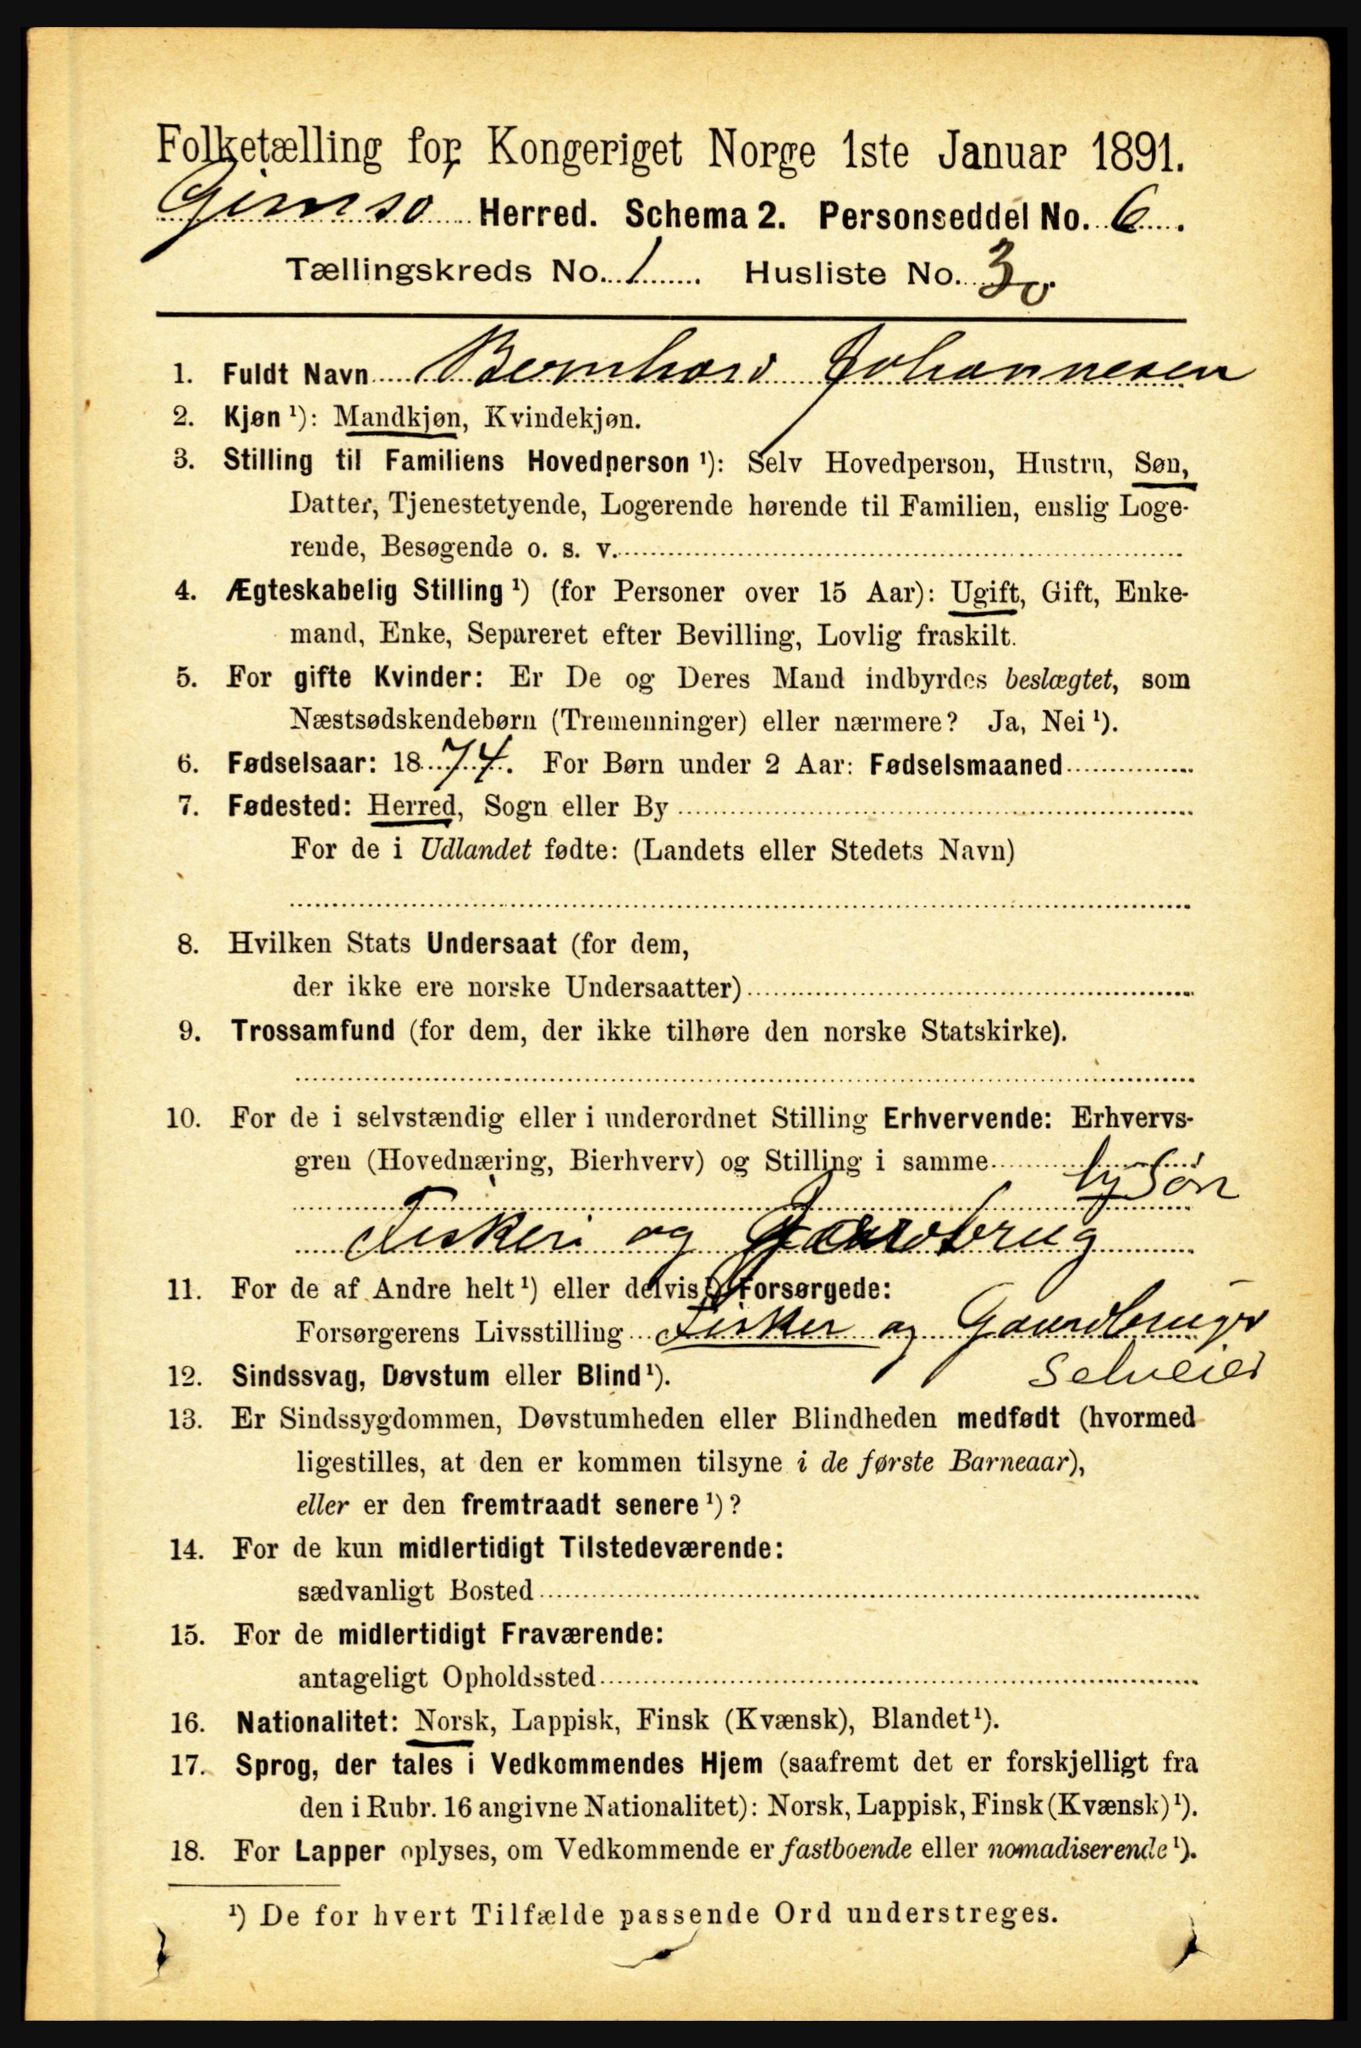 Folketælling for Kongeriget Norge 1ste Januar 1891.
Gimsø Herred. Schema 2. Personseddel No. 6.
Tællingskreds No. 1. Husliste No. 30.
1. Fuldt Navn Bernhard Johannesen
2. Kjøn ¹): Mandkjøn, Kvindekjøn.
3. Stilling til Familiens Hovedperson ¹): Selv Hovedperson, Hustru, Søn,
Datter, Tjenestetyende, Logerende hørende til Familien, enslig Loge-
rende, Besøgende o. s. v.
4. Ægteskabelig Stilling ¹) (for Personer over 15 Aar): Ugift, Gift, Enke-
mand, Enke, Separeret efter Bevilling, Lovlig fraskilt.
5. For gifte Kvinder: Er De og Deres Mand indbyrdes beslægtet, som
Næstsødskendebørn (Tremenninger) eller nærmere? Ja, Nei ¹).
6. Fødselsaar: 1874. For Børn under 2 Aar: Fødselsmaaned
7. Fødested: Herred, Sogn eller By
For de i Udlandet fødte: (Landets eller Stedets Navn)
8. Hvilken Stats Undersaat (for dem,
der ikke ere norske Undersaatter)
9. Trossamfund (for dem, der ikke tilhøre den norske Statskirke).
10. For de i selvstændig eller i underordnet Stilling Erhvervende: Erhvervs-
gren (Hovednæring, Bierhverv) og Stilling i samme
Søn
Fiskeri og Gaardbrug
11. For de af Andre helt ¹) eller delvis ¹) Forsørgede:
Forsørgerens Livsstilling Fisker og Gaardbruger
Selveier
12. Sindssvag, Døvstum eller Blind ¹).
13. Er Sindssygdommen, Døvstumheden eller Blindheden medfødt (hvormed
ligestilles, at den er kommen tilsyne i de første Barneaar),
eller er den fremtraadt senere ¹)?
14. For de kun midlertidigt Tilstedeværende:
sædvanligt Bosted
15. For de midlertidigt Fraværende:
antageligt Opholdssted
16. Nationalitet: Norsk, Lappisk, Finsk (Kvænsk), Blandet ¹).
17. Sprog, der tales i Vedkommendes Hjem (saafremt det er forskjelligt fra
den i Rubr. 16 angivne Nationalitet): Norsk, Lappisk, Finsk (Kvænsk) ¹).
18. For Lapper oplyses, om Vedkommende er fastboende eller nomadiserende ¹).
¹) De for hvert Tilfælde passende Ord understreges.